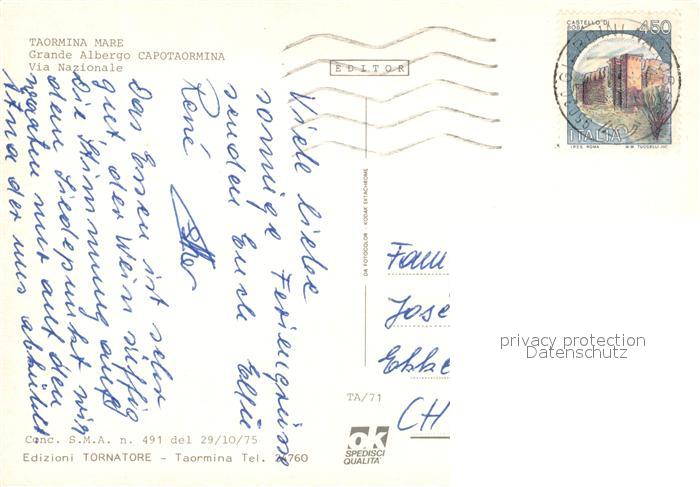 TAORMINA MARE
Grande Albergo CAPOTAORMINA
Via Nazionale
EDITOR
CASTELLO DI
450
ITALIA
I.P.Z.S. ROMA
Viele liebe
sonnige Feriengrüsse
senden Euch
René
Das Essen ist sehr
gut der Wein süffig
die Stimmung auf
dem Siedepunkt wir
warten nur auf den
Ätna der uns abkühlt.
DA FOTOCOLOR - KODAK EKTACHROME
Fam
José
Ekke
CH
privacy protection
Datenschutz
TA/71
ok
SPEDISCI
QUALITA'
Conc. S.M.A. n. 491 del 29/10/75
Edizioni TORNATORE - Taormina Tel. 24760